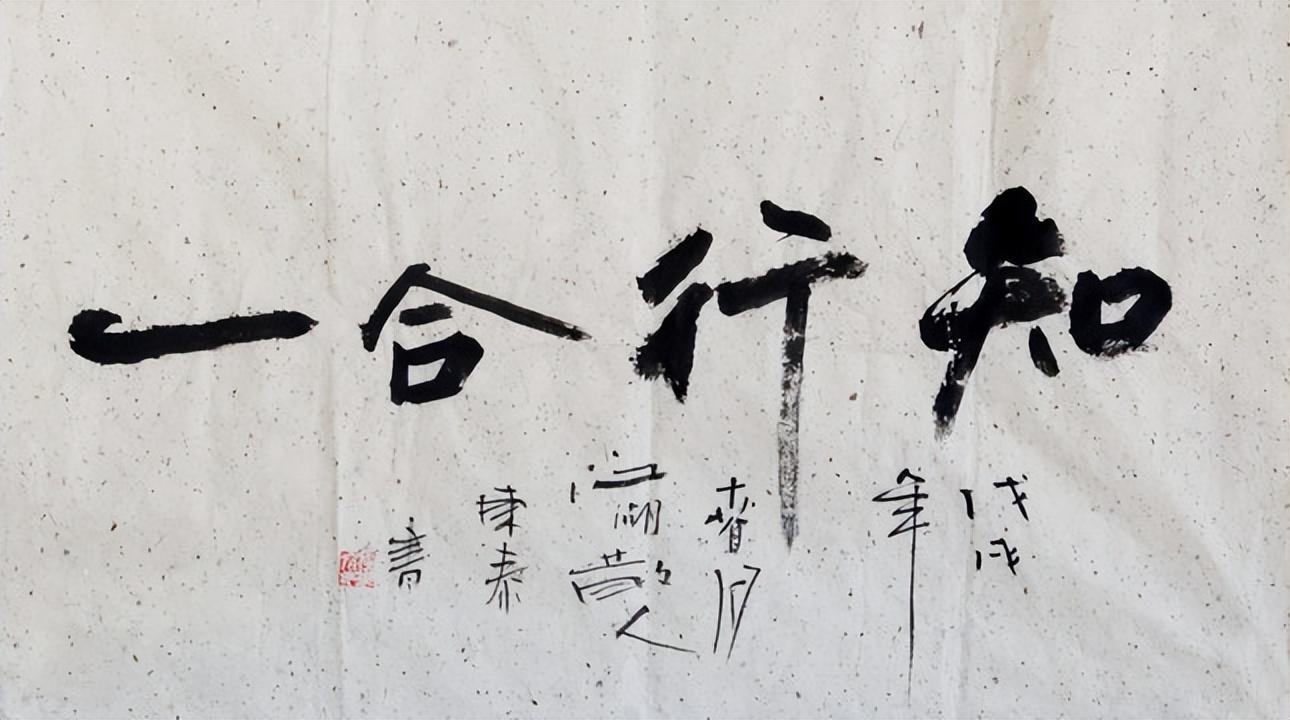 知行合一
戊戌
年
春月
江湖散人
陳泰
書